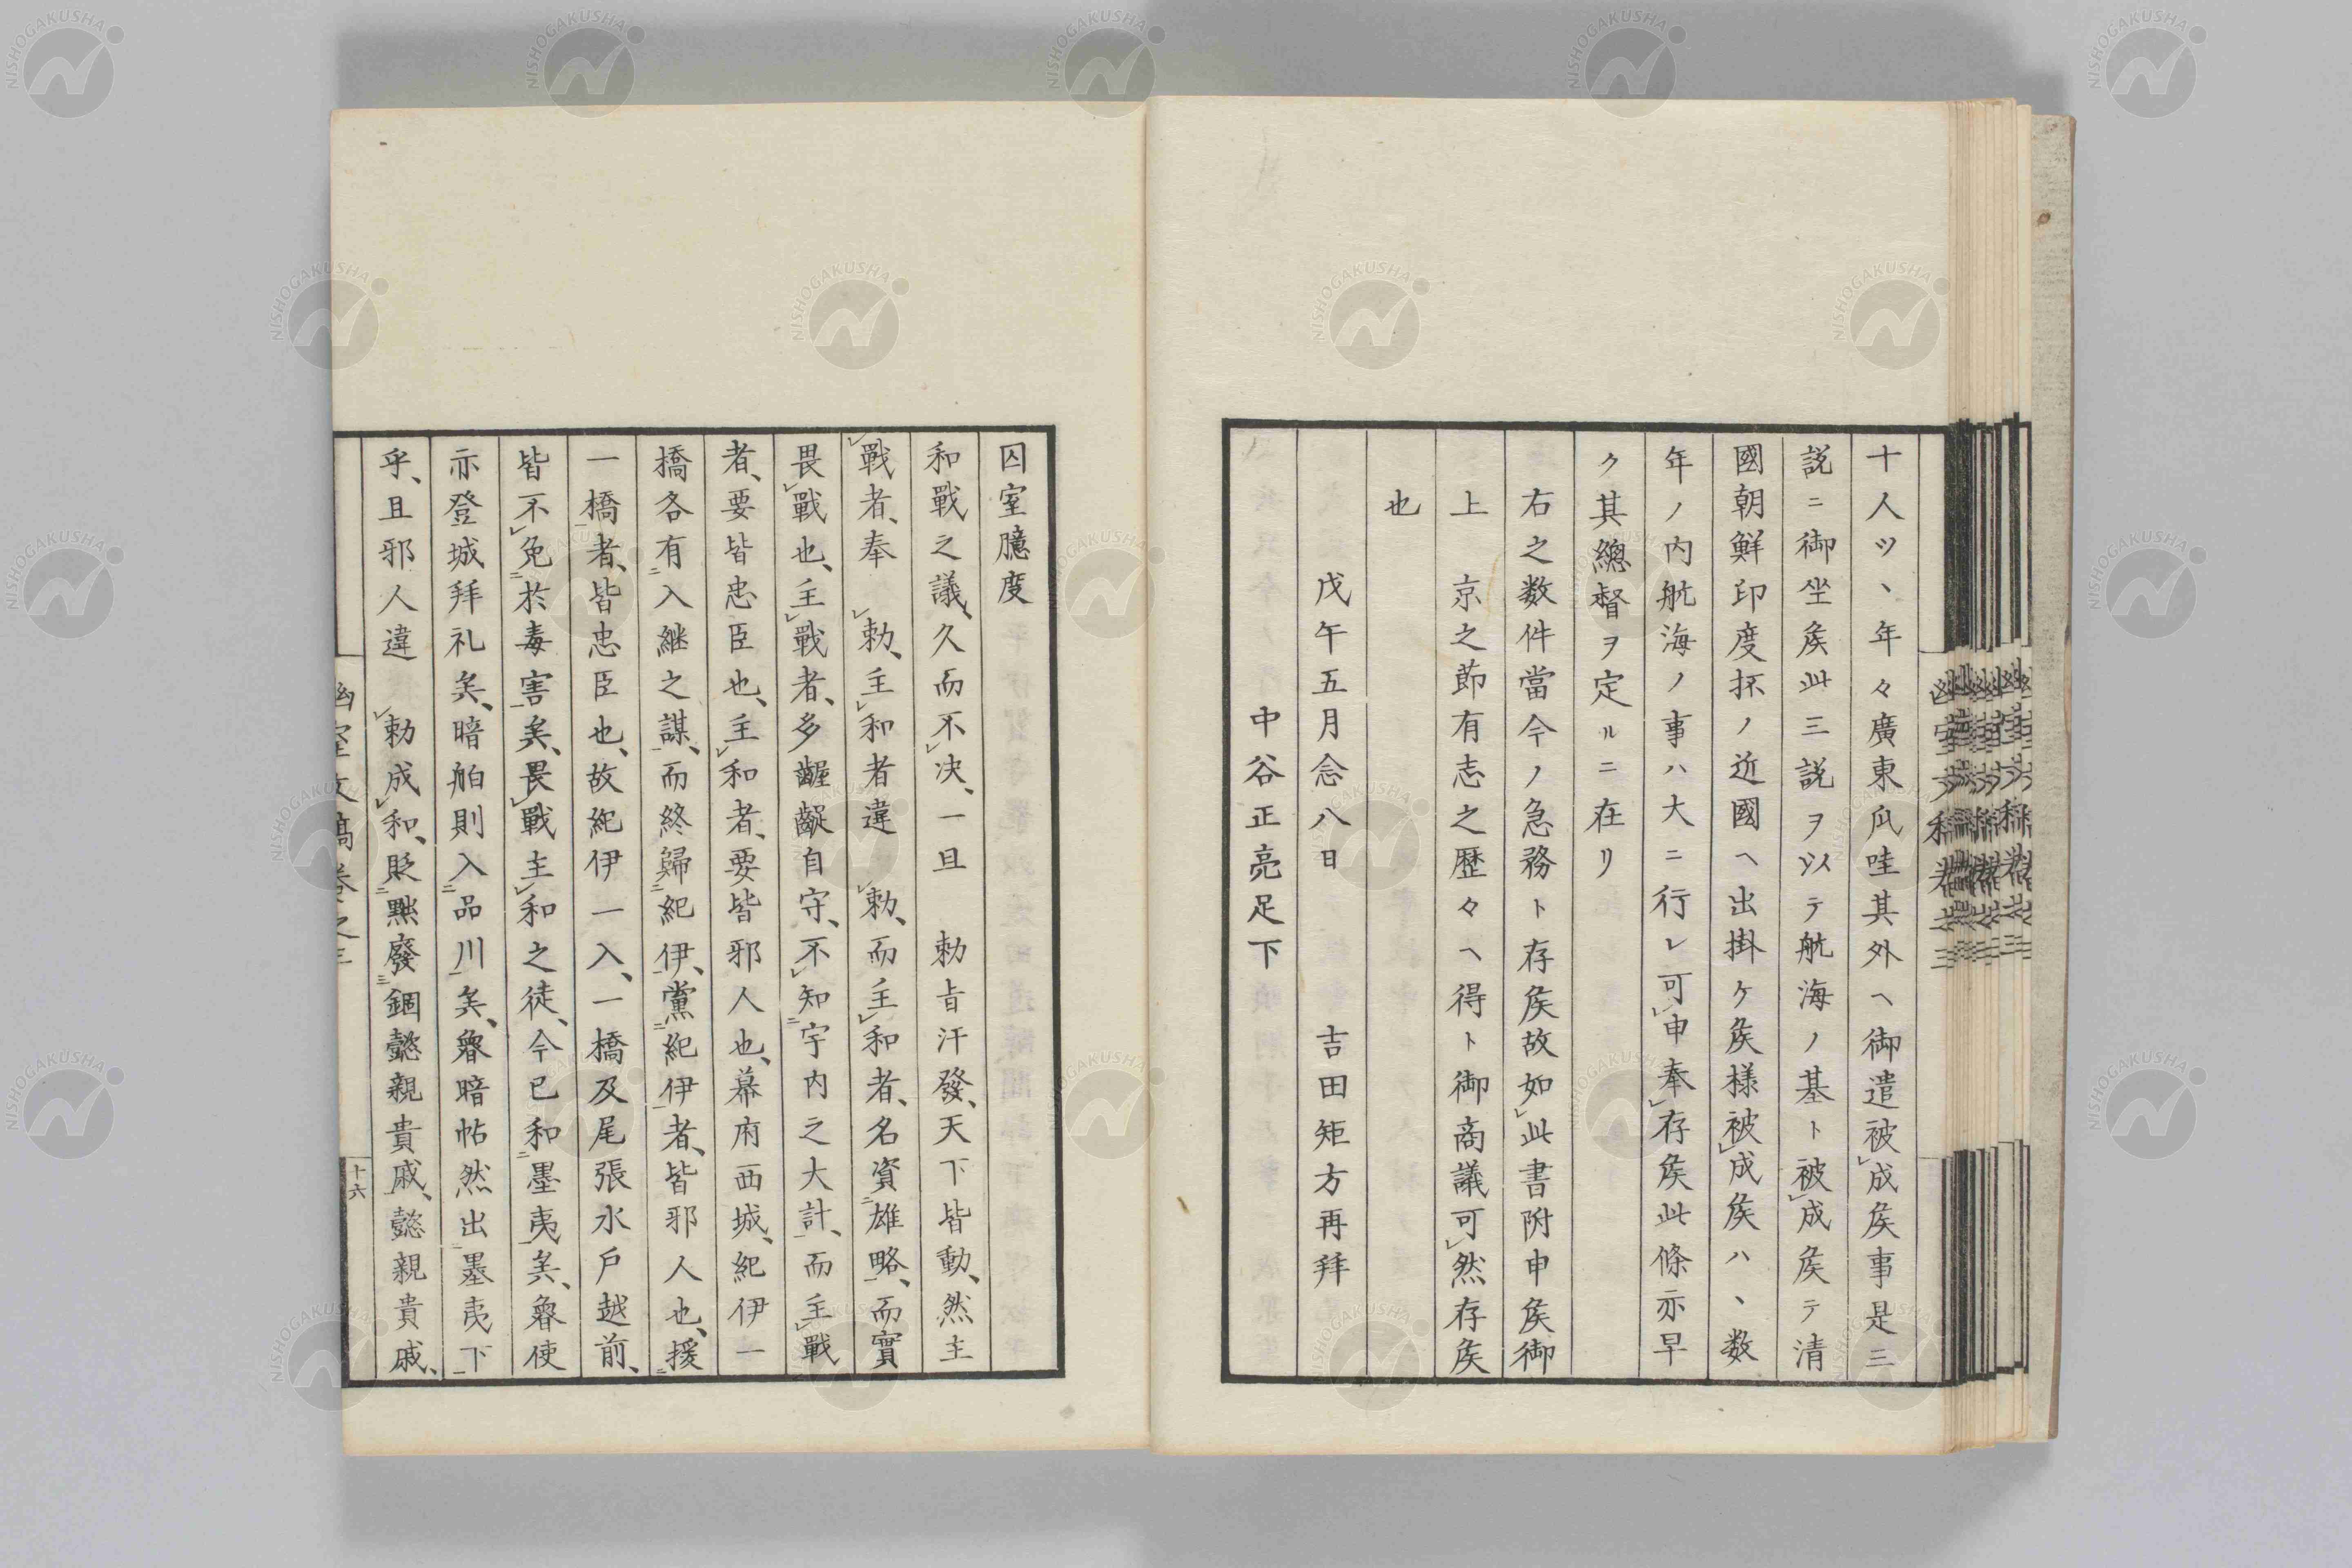 十人ツヽ年々廣東瓜哇其外ヘ御遣被㆑成矦事是三
説ニ御坐矦此三説ヲ以テ航海ノ基ト被㆑成矦テ清
國朝鮮印度抔ノ近國ヘ出掛ケ矦様被㆑成矦ハヽ数
年ノ内航海ノ事ハ大ニ行レ可㆑申奉㆑存矦此條亦早
ク其總督ヲ定ルニ在リ
右之数件當今ノ急務ト存矦故如㆑此書附申矦御
上京之節有志之歴々ヘ得ト御商議可㆑然存矦
也
戊午五月念八日 吉田矩方再拜
中谷正亮足下
囚室臆度
和戰之議、久而不㆑决、一旦 勅旨汗發、天下皆動、然主
㆑戰者、奉㆑ 勅、主㆑和者違㆑ 勅、而主㆑和者、名資㆓雄略㆒、而實
畏㆑戰也、主㆑戰者、多齷齪自守、不㆑知㆓宇内之大計㆒、而主㆑戰
者、要皆忠臣也、主㆑和者、要皆邪人也、幕府西城、紀伊一
橋各有㆘入継之謀㆒、而終歸㆓紀伊㆒、黨㆓紀伊㆒者、皆邪人也、援㆓
一橋㆒者、皆忠臣也、故紀伊一入、一橋及尾張水戶越前、
皆不㆑免㆓於毒害㆒矣、畏㆑戰主㆑和之徒、今已和㆓墨夷㆒矣、魯使
亦登城拜礼矣、暗舶則入㆓品川㆒矣、魯暗帖然出㆓墨夷下㆒
乎、且邪人違㆑ 勅成㆑和、貶㆓黜廢㆓錮懿親貴戚㆒、懿親貴戚、
幽室文稿卷之三
十六